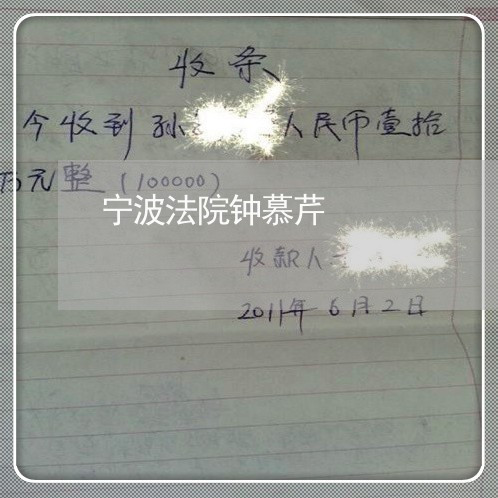 收条
今收到孙 人民币壹拾
万元整(100000)
宁波法院钟慕芹
收款人
2011年6月2日